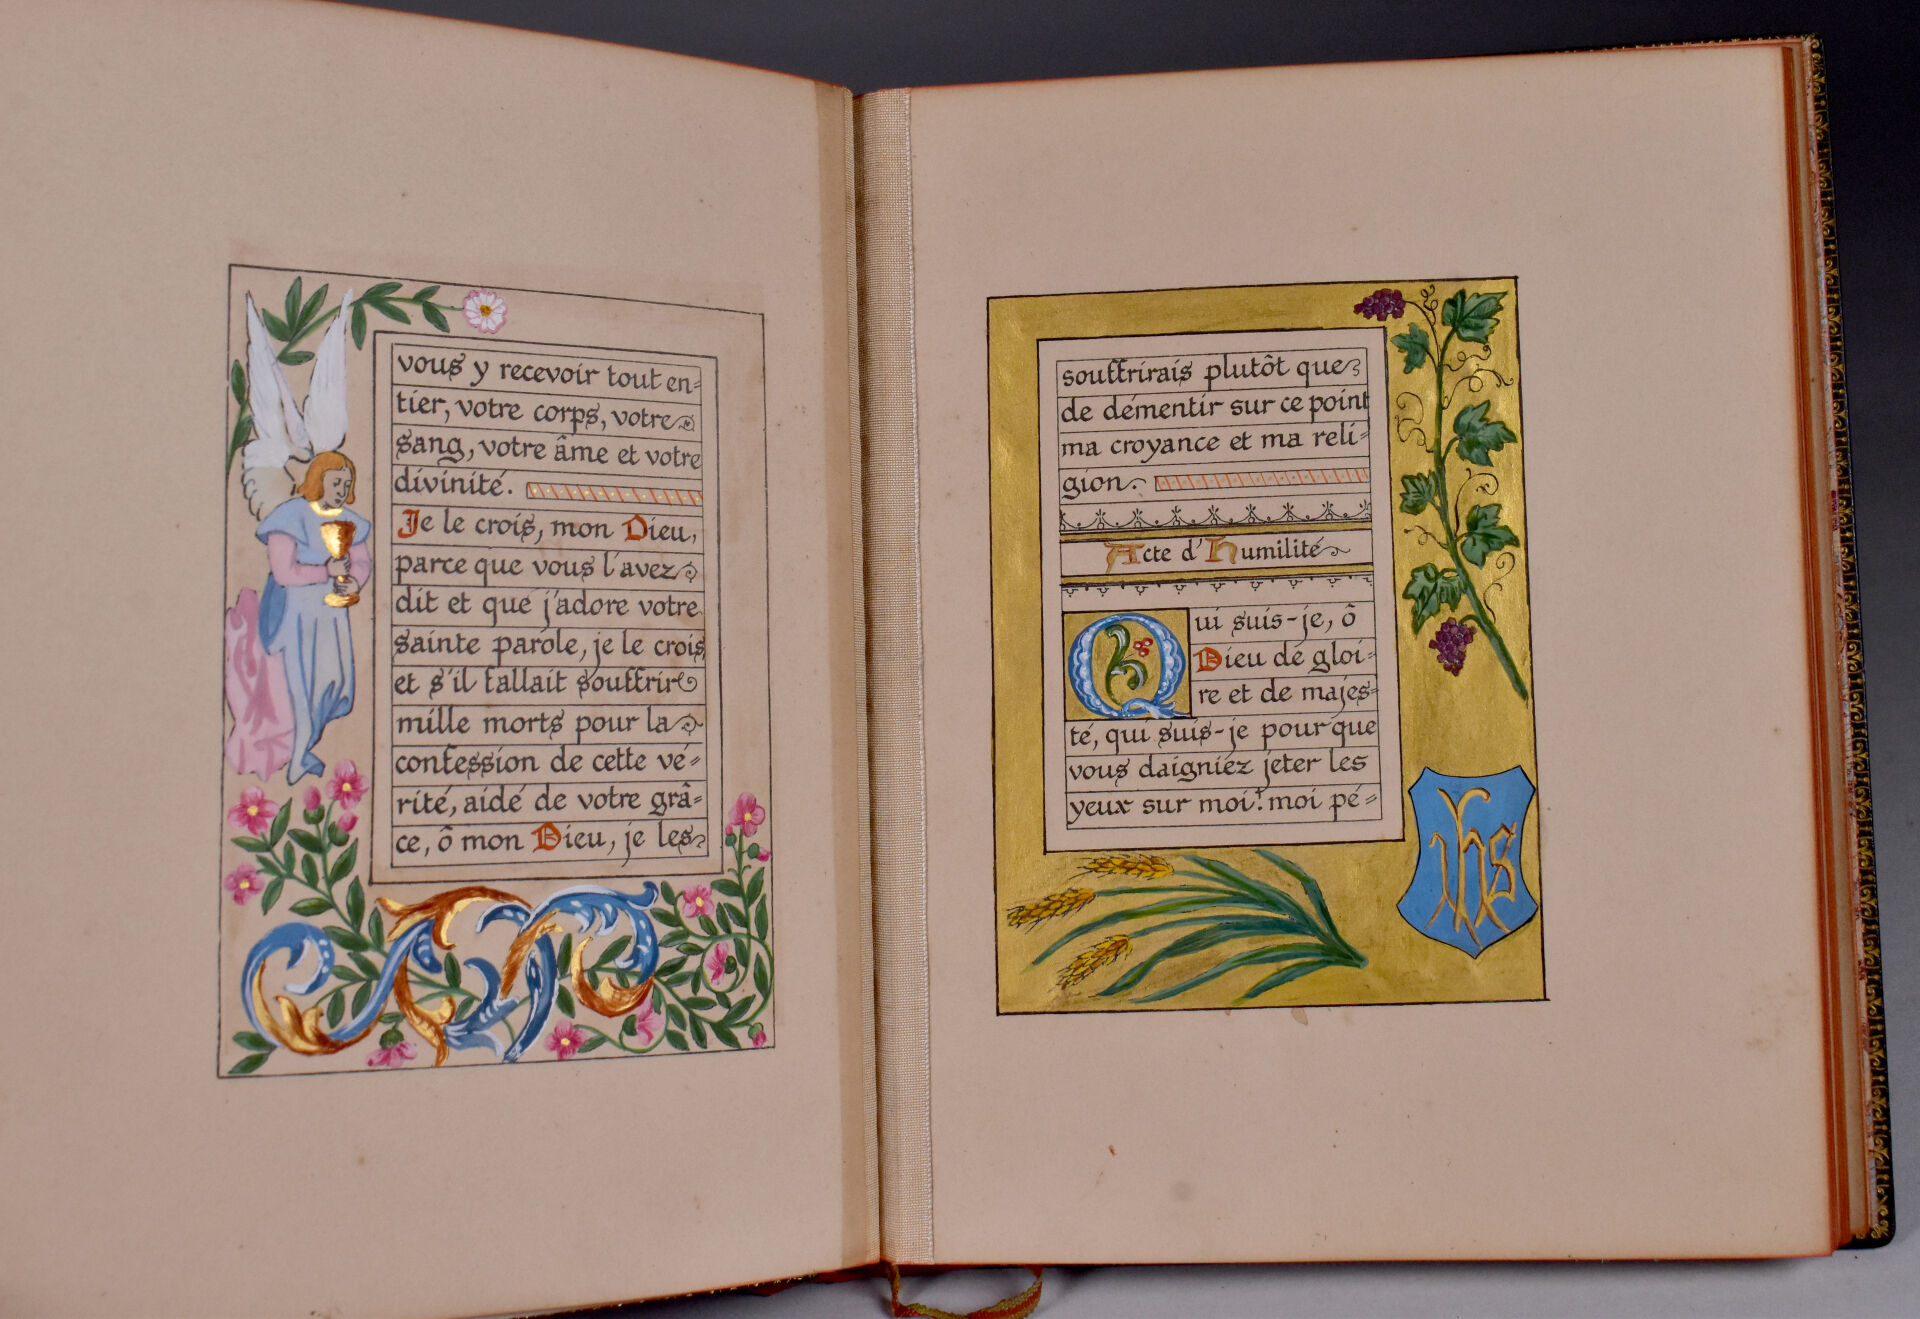 vous y recevoir tout en=
tier, votre corps, votre
sang, votre âme et votre
divinité.
Je le crois, mon Dieu,
parce que vous l'avez
dit et que j'adore votre
sainte parole, je le crois
et s'il fallait souffrir
mille morts pour la
confession de cette vé=
rité, aidé de votre grâ=
ce, ô mon Dieu, je les
souffrirais plutôt que
de démentir sur ce point
ma croyance et ma reli=
gion.
Acte d'Humilité
Qui suis-je, ô
Dieu de gloi=
re et de majes=
té, qui suis-je pour que
vous daigniez jeter les
yeux sur moi! moi pé=
ihs